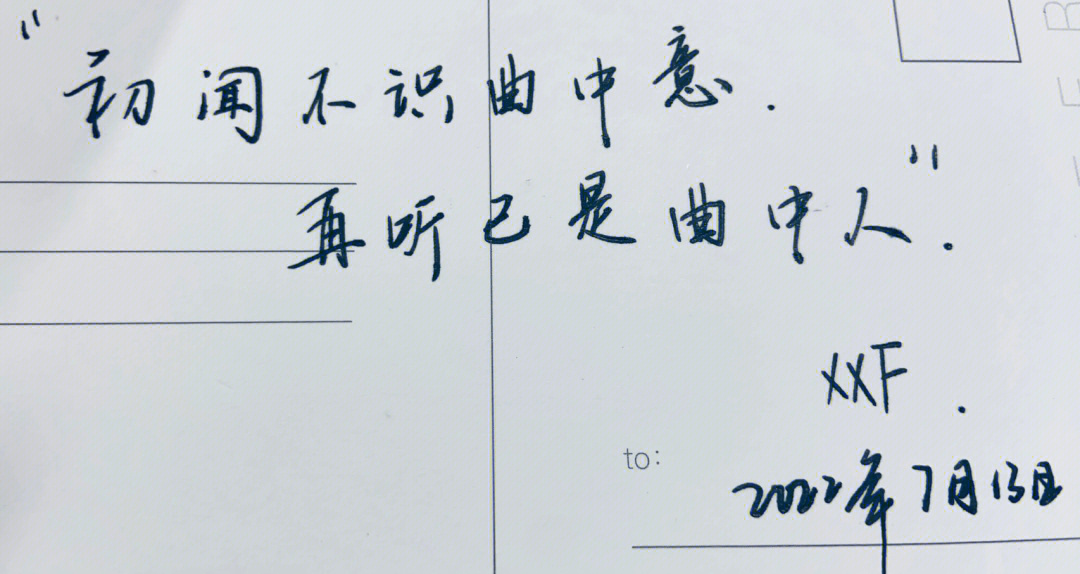 "初闻不识曲中意.
再听已是曲中人".
XXF.
to:
2022年7月13日